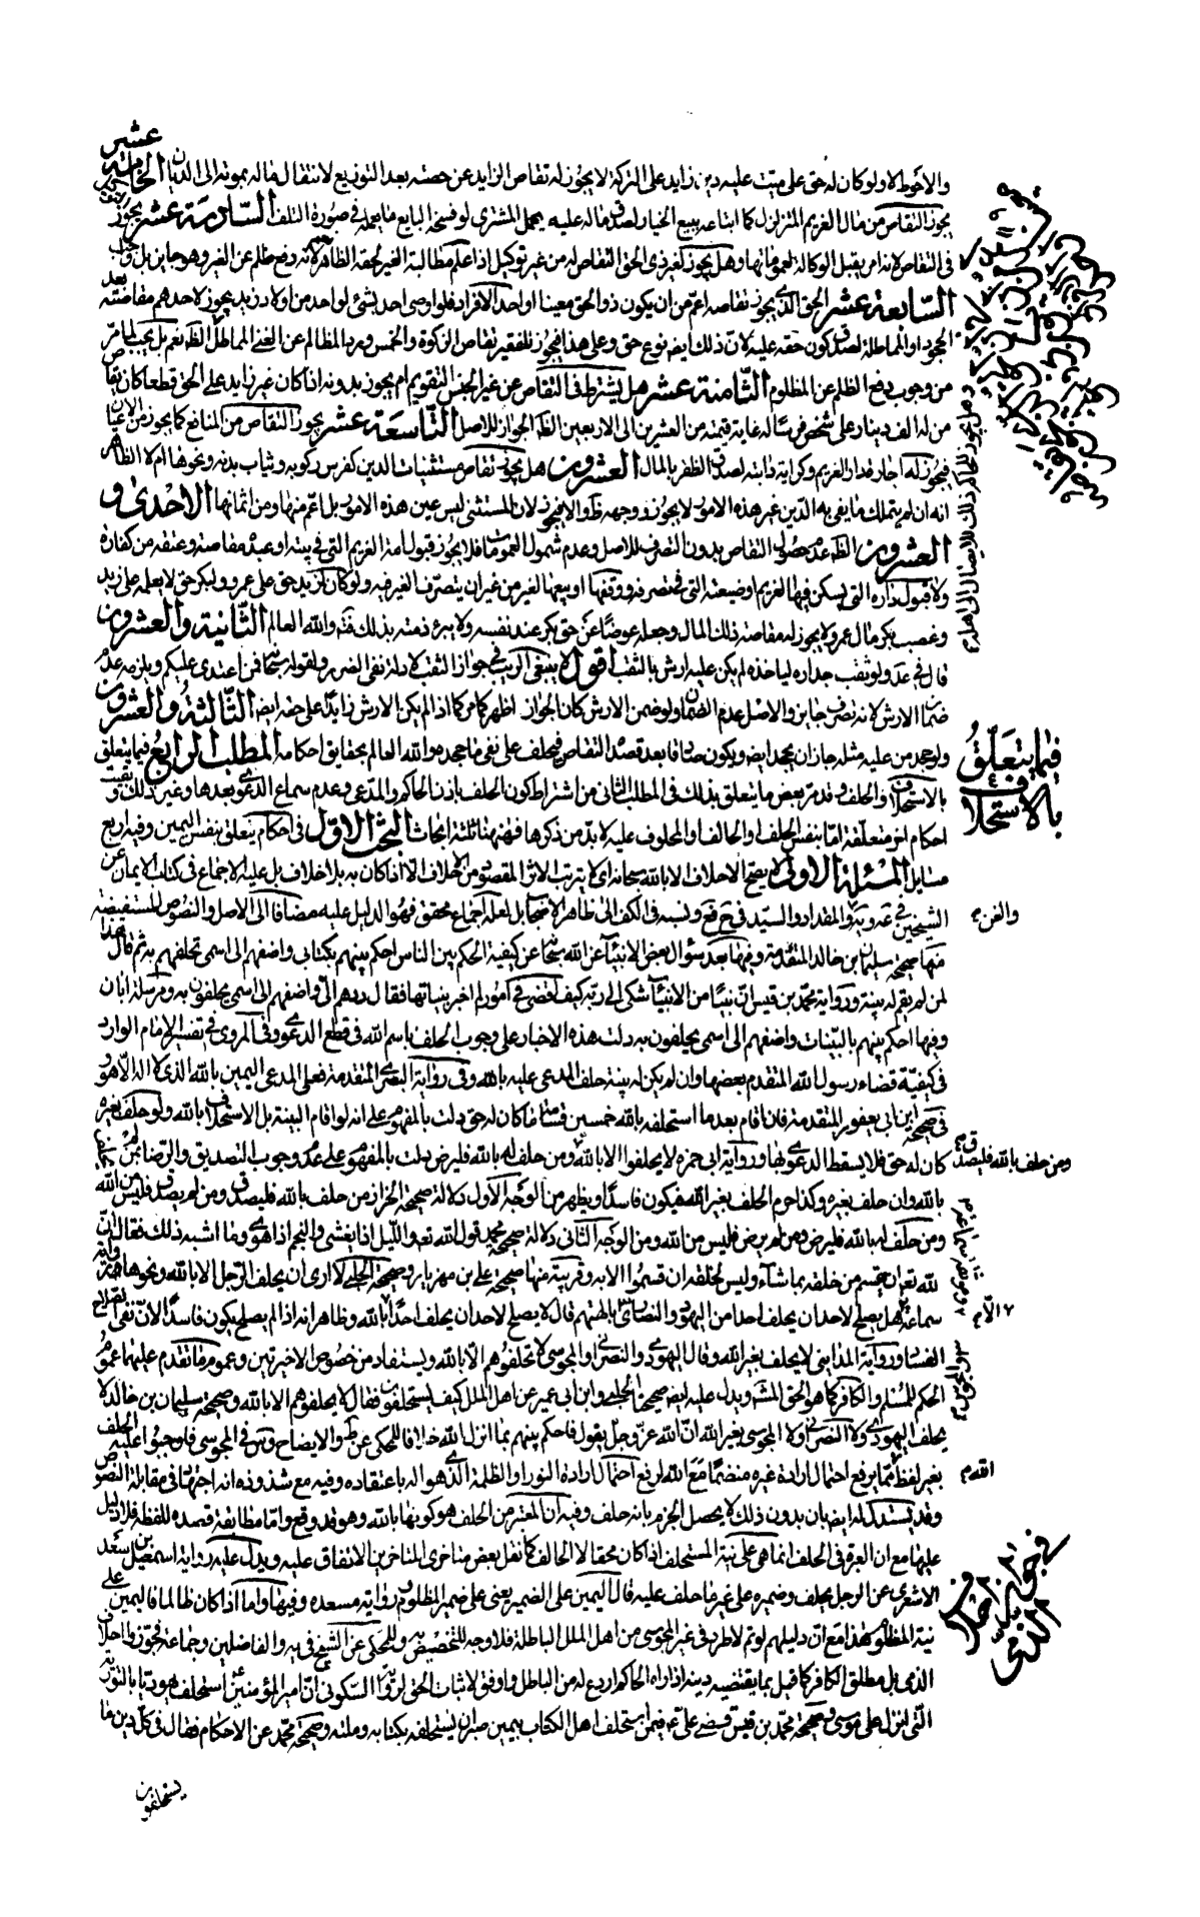 والأحوط الاول ولو كان له حق على ميت عليه دين زايد على التركة لا يجوز له تقاص الزايد عن حصته بعد التوزيع لانتقال ماله بموته الى الديان الخامسة عشر
يجوز التقاص من مال الغريم المتزلزل كما ابتاعه ببيع الخيار لصدق ماله عليه يحمل المشترى لو فسخ البايع ما يعمله في صورة التلف السادسة عشر يجوز
في التقاص لانه امر يقبل الوكالة لعموماتها وهل يجوز لغير ذى الحق التقاص له من غير توكيل اذا علم مطالبة الغير لحقه الظاهر لانه دفع ظلم عن الغير وهو جايز بل واجب
السابعة عشر الحق الذى يجوز تقاصه اعم من ان يكون ذو الحق معينا او احد الافراد فلو اوصى احد بشئ لواحد من اولاد زيد يجوز لاحدهم مقاصته بعد
الجحود او المماطلة لصدق كون حقه عليه لان ذلك ايضا نوع حق وعلى هذا فيجوز للفقير تقاص الزكوة والخمس ورد المظالم عن الغنى المماطل الظ نعم بل يجب لما مر
من وجوب دفع الظلم عن المظلوم الثامنة عشر هل يشترط في التقاص عن غير الجنس التقويم ام يجوز بدونه اذا كان غير زايد على الحق قطعا كان يقاص
من له الف دينار على شخص فرسا له غاية قيمته من العشرين الى الاربعين الظ الجواز للاصل التاسعة عشر يجوز التقاص من المنافع كما يجوز من الاعيان
فيجوز له اجارة دار الغريم وكراية دابته لصدق الظفر بالمال العشرون هل يجوز تقاص مستثنيات الدين كفرس ركوبه وثياب بدنه ونحوها ام لا الظاهر
انه ان لم يتملك ما يفى به الدين غير هذه الامور لا يجوز ووجهه ظ والا فيجوز لان المستثنى ليس عين هذه الامور بل اعم منها ومن اثمانها الاحدى و
العشرون الظ عدم حصول التقاص بدون التصرف للاصل وعدم شمول العمومات فلا يجوز قبول امة الغريم التى في بيته او عبده مقاصة وعتقه من كفارة
ولا قبول داره التى يسكن فيها الغريم او ضيعته التى في تصرفه ووقفها او بيعها لغير من غير ان يتصرف الغير فيه ولو كان لزيد حق على عمرو ولبكر حق لا يعلمه على زيد
وغصب بكر مال عمرو لا يجوز له مقاصة ذلك المال وجعله عوضا عن حق بكر عند نفسه ولا يبرء ذمته بذلك منه والله العالم الثانية والعشرون
قال في عد ولو ثقب جداره لياخذه لم يكن عليه ارش بالثقب اقول لا ينبغى الريب في جواز الثقب لادلة نفى الضرر ولقوله سبحانه فمن اعتدى عليكم ويلزمه عدم
ضمان الارش لانه تصرف جايز والاصل عدم الضمان ولو ضمن الارش كان الجواز اظهر كما مر كما اذا لم يكن الارش زايدا على حقه ايضا الثالثة والعشرون
ولو جحد من عليه مثله جاز ان يجحد ايضا ويكون صادقا بعد قصد التقاص فيحلف على نفى ما جحده والله العالم بحقايق احكامه المطلب الرابع فيما يتعلق
بالاستحلاف والحلف وقد مر بعض ما يتعلق بذلك في المطلب الثانى من اشتراط كون الحلف باذن الحاكم والمدعى وعدم سماع الدعوى بعدها وغير ذلك وبقيت
احكام اخر متعلقة اما بنفس الحلف او الحالف او المحلوف عليه لا بد من ذكرها فههنا ثلثة ابحاث البحث الاول في احكام يتعلق بنفس اليمين وفيه اربع
مسايل المسئلة الاولى لا يصح الاحلاف الا بالله سبحانه اى لا يترتب الاثر المقصود من الاحلاف الا اذا كان به بلا خلاف بل عليه الاجماع في كتاب الايمان عن
الشيخين في والمقداد والسيد في ونسبه في الكفاية الى ظاهر الاصحاب بل لعله اجماع محقق فهو الدليل عليه مضافا الى الاصل والنصوص المستفيضة
منها صحيحة سليمان بن خالد المتقدمة وفيها بعد سؤال بعض الانبياء عن الله سبحانه عن كيفية الحكم بين الناس احكم بينهم بكتابى واضفهم الى اسمى تحلفهم به ثم قال هذا
لمن لم يقم له بينة ورواية محمد بن قيس ان نبيا من الانبياء شكى الى ربه كيف اقضى في امور لم اخبر ببيانها فقال ردهم الى واضفهم الى اسمى يحلفون به ومرسلة ابان
وفيها احكم بينهم بالبينات واضفهم الى اسمى يحلفون به دلت هذه الاخبار على وجوب الحلف باسم الله في قطع الدعوى وفي المروى في تفسير الامام الوارد
في كيفية قضاء رسول الله المتقدم بعضها وان لم يكن له بينة حلف المدعى عليه بالله وفي رواية البصرى المتقدمة فعلى المدعى اليمين بالله الذى لا اله الا هو
في صحيحة ابن ابى يعفور المتقدمة فان اقام بعد ما استحلفه بالله خمسين قسامة ما كان له حق دلت بالمفهوم على انه لو اقام البينة بل الاستحلاف بالله ولو حلف بغيره
كان له حق فلا يسقط الدعوى بها ورواية ابى حمزة لا يحلفوا الا بالله ومن حلف له بالله فليرض دلت بالمفهوم على عدم وجوب التصديق والرضا لمن لم
بالله وان حلف بغيره وكذا حرم الحلف بغير الله فيكون فاسدا ويظهر من الوجه الاول دلالة صحيحة الخزاز من حلف بالله فليصدق ومن لم يصدق فليس من الله
ومن حلف له بالله فليرض ومن لم يرض فليس من الله ومن الوجه الثانى دلالة صحيحة محمد قول الله تعالى والليل اذا يغشى والنجم اذا هوى وما اشبه ذلك فقال ان
لله تعالى ان يقسم من خلقه بما شاء وليس لخلقه ان يقسموا الا به وقريبة منها صحيحة على بن مهزيار وصحيحة الحلبى لا ارى ان يحلف الرجل الا بالله ونحوها
سماعة هل يصلح لاحد ان يحلف احدا من اليهود والنصارى بالهتهم قال لا يصلح لاحد ان يحلف احدا الا بالله وظاهر انه اذا لم يصلح يكون فاسدا لان نفى الصلاح
الفساد ورواية المدائنى لا يحلف بغير الله وقال اليهودى والنصرانى والمجوسى لا تحلفوهم الا بالله ويستفاد من خصوص الاخيرتين وعموم ما تقدم عليهما عموم
الحكم للمسلم والكافر كما هو الحق المشهور ويدل عليه ايضا صحيحة الحلبى وابن ابى عمير عن اهل الملل كيف يستحلفون فقال لا يحلفوهم الا بالله وصحيحة سليمان بن خالد لا
يحلف اليهودى ولا النصرانى ولا المجوسى بغير الله ان الله عز وجل يقول فاحكم بينهم بما انزل الله خلافا للمحكى عن ط والايضاح وس في المجوسى فاوجبوا عليه الحلف
بغير لفظ مما يرفع احتمال ارادة غيره منضما مع الله لرفع احتمال ارادة النور او الظلمة الذى هو اله باعتقاده وفيه مع شذوذه انه اجتهاد في مقابلة النصوص
وقد يستدل له ايضا بان بدون ذلك لا يحصل الجزم بانه حلف وفيه ان المعتبر من الحلف هو كونها بالله وهو قد وقع واما مطابقة قصده للفظه فلا دليل
عليها مع ان العبرة في الحلف انما هى على نية المستحلف اذا كان محقا لا الحالف كما نقل بعض متاخرى المتاخرين الاتفاق عليه ويدل عليه رواية اسمعيل بن سعد
الاشعرى عن الرجل يحلف وضميره على غير ما حلف عليه قال اليمين على الضمير يعنى على ضمير المظلوم ورواية مسعدة وفيها واما اذا كان ظالما فاليمين على
نية المظلوم هذا مع ان دليلهم لو تم لاطرد في غير المجوسى من اهل الملل الباطلة فلا وجه للتخصيص به وللمحكى عن الشيخ في يه والفاضلين وجماعة فجوزوا احلاف
الذمى بل مطلق الكافر كما قيل بما يقتضيه دينه اذا راه الحاكم اردع له من الباطل واوفق لاثبات الحق لرواية السكونى ان امير المؤمنين استحلف يهوديا بالتورية
التى انزل على موسى وصحيحة محمد بن قيس قضى على ع فيمن استحلف اهل الكتاب بيمين صبر ان يستحلفه بكتابه وملته وصحيحة محمد عن الاحكام فقال في كل دين ما
يستحلفون
فيما يتعلق
بالاستحلاف
والغنية
ومن حلف بالله فليصدق
في جواز احلاف
الذمى